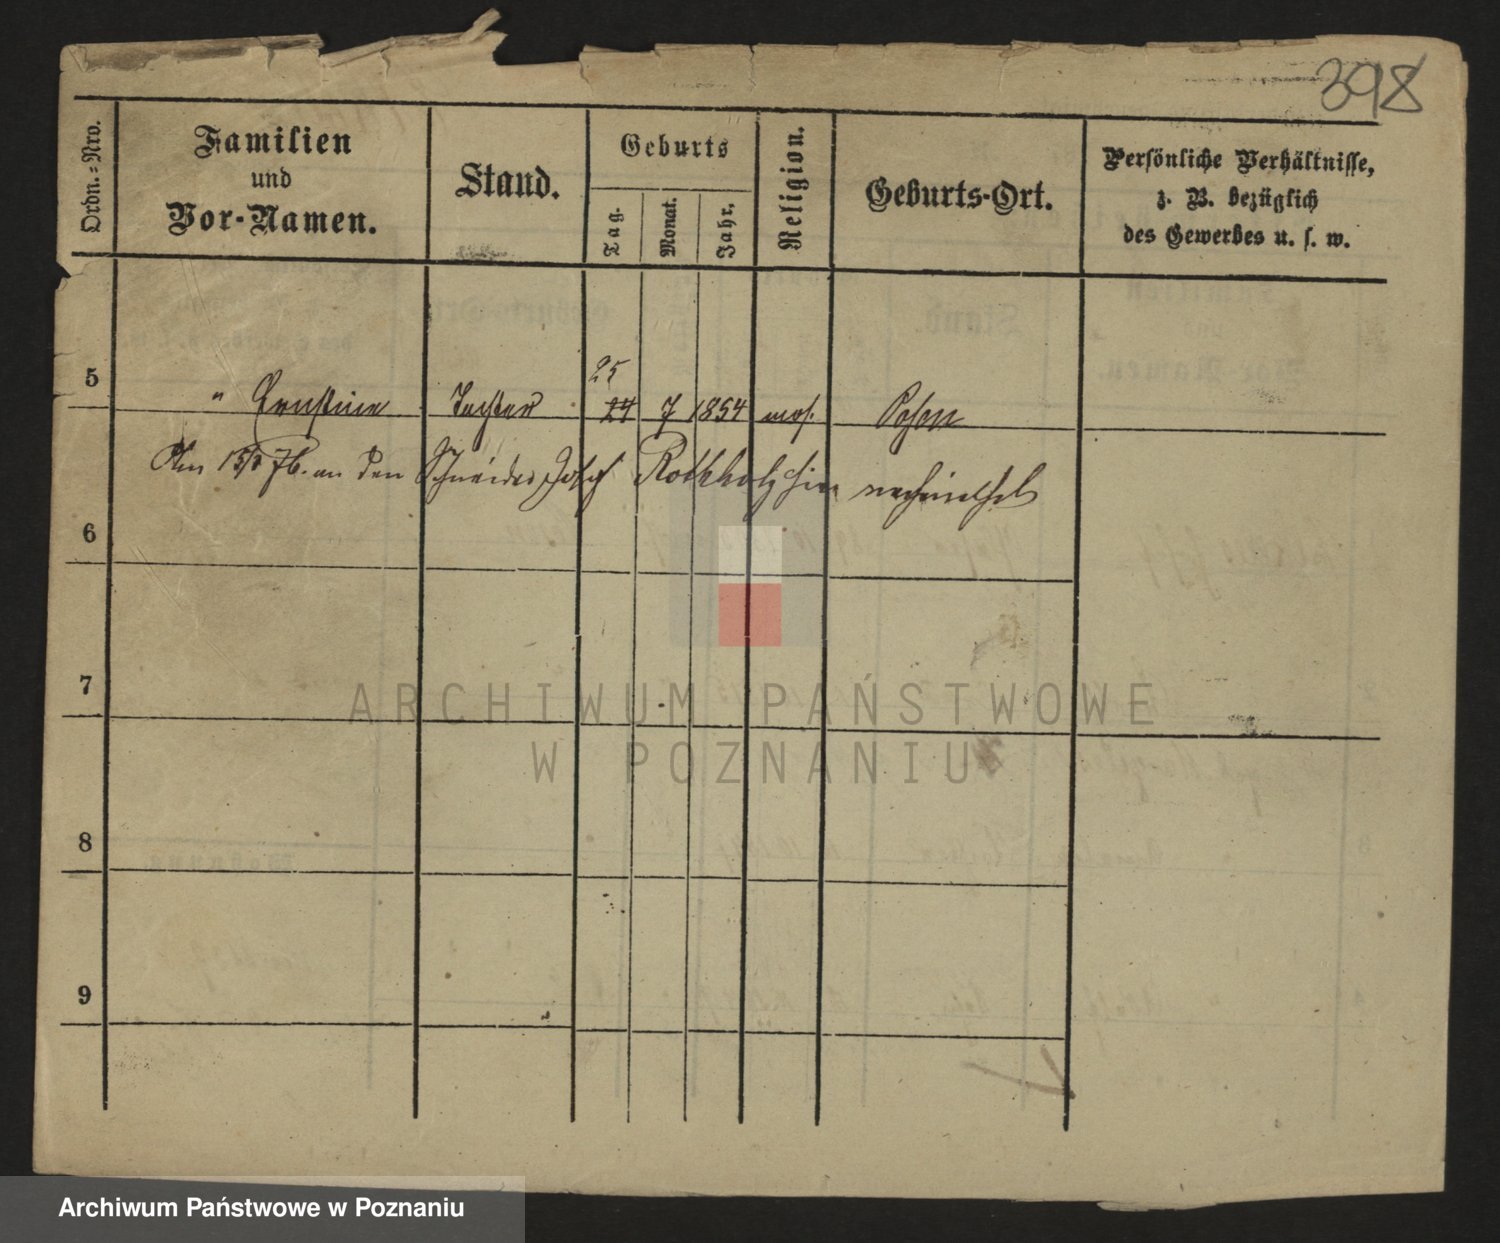 398
Ordn.-Nro.
Familien
und
Vor-Namen.
Stand.
Geburts
Tag.
Monat.
Jahr.
Religion.
Geburts-Ort.
Persönliche Verhältnisse,
z. B. bezüglich
des Gewerbes u. s. w.
25
5 " Ernstine Tochter 24 7 1854 mos. Posen
Am 15/2 76. an den Schneider Josef Rothholz hier verheirathet
6
7
8
9
ARCHIWUM PAŃSTWOWE
W POZNANIU
Archiwum Państwowe w Poznaniu